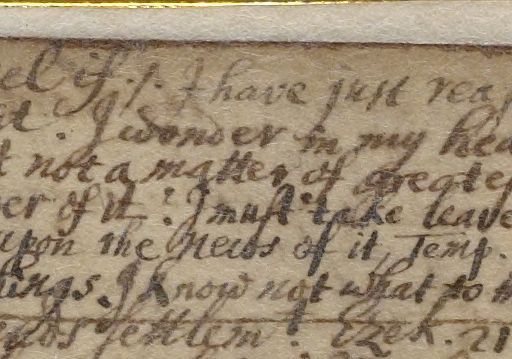 if. I have just rea
I wonder in my hea
not a matter of greate
er of it. I must take leave
upon the News of it, Temp.
ings. I know not what to
settlem. Ezek. 21